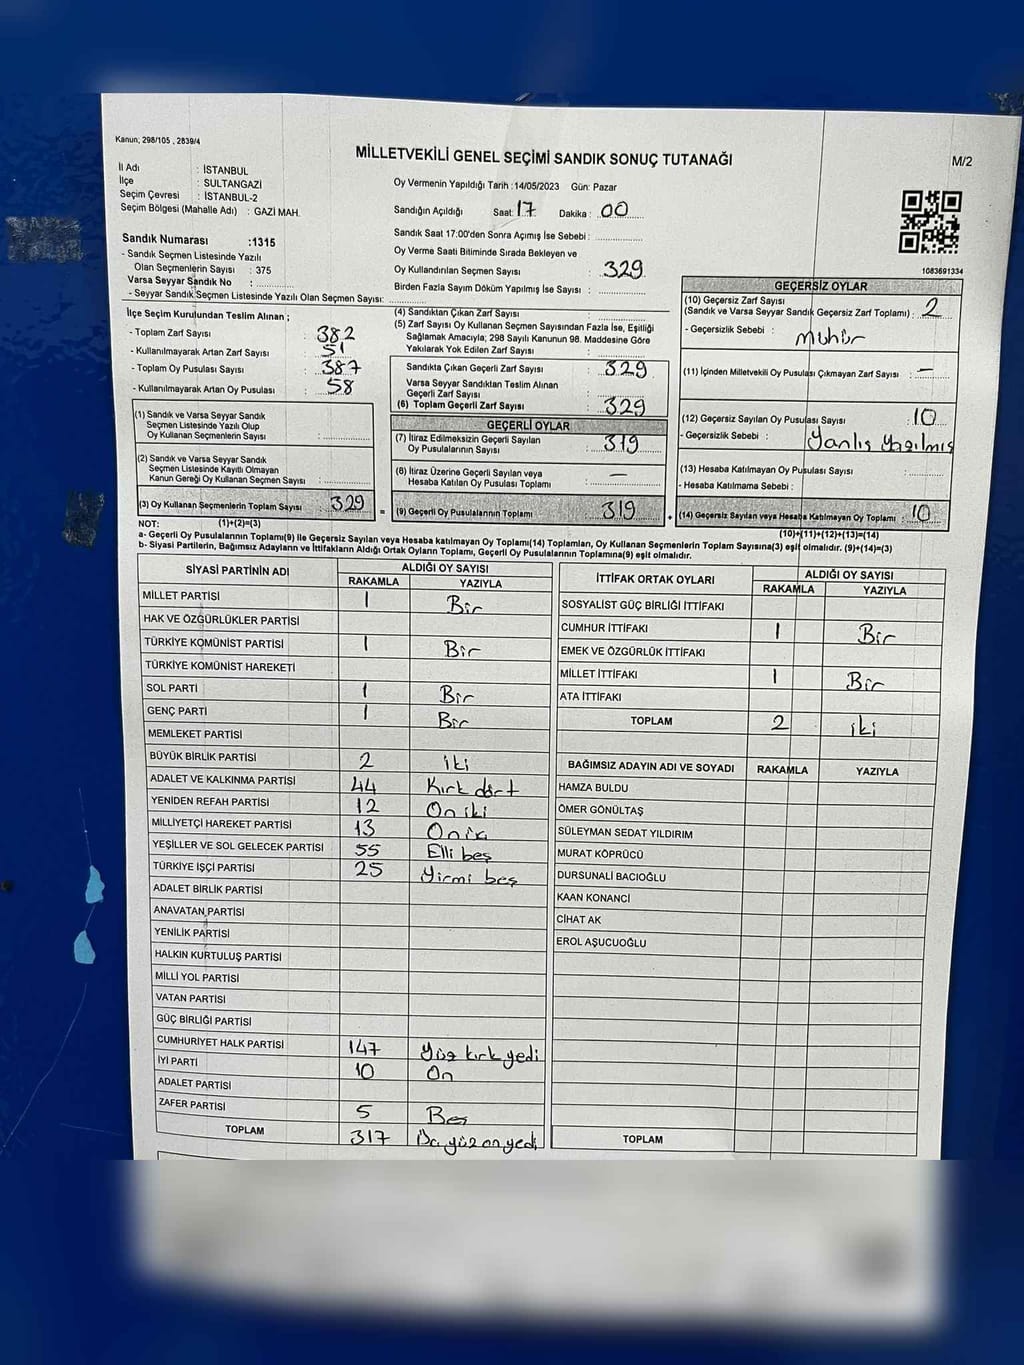 Kanun; 298/105 , 2839/4
MİLLETVEKİLİ GENEL SEÇİMİ SANDIK SONUÇ TUTANAĞI
M/2
İl Adı : İSTANBUL
İlçe : SULTANGAZİ
Seçim Çevresi : İSTANBUL-2
Seçim Bölgesi (Mahalle Adı) : GAZİ MAH.
Sandık Numarası :1315
- Sandık Seçmen Listesinde Yazılı
Olan Seçmenlerin Sayısı : 375
Varsa Seyyar Sandık No :
- Seyyar Sandık Seçmen Listesinde Yazılı Olan Seçmen Sayısı:
Oy Vermenin Yapıldığı Tarih :14/05/2023 Gün: Pazar
Sandığın Açıldığı Saat: 17 Dakika : 00
Sandık Saat 17:00'den Sonra Açımış İse Sebebi :
Oy Verme Saati Bitiminde Sırada Bekleyen ve
Oy Kullandırılan Seçmen Sayısı : 329
Birden Fazla Sayım Döküm Yapılmış İse Sayısı :
1083691334
İlçe Seçim Kurulundan Teslim Alınan ;
- Toplam Zarf Sayısı : 382
- Kullanılmayarak Artan Zarf Sayısı : 51
- Toplam Oy Pusulası Sayısı : 387
- Kullanılmayarak Artan Oy Pusulası : 58
(1) Sandık ve Varsa Seyyar Sandık
Seçmen Listesinde Yazılı Olup
Oy Kullanan Seçmenlerin Sayısı :
(2) Sandık ve Varsa Seyyar Sandık
Seçmen Listesinde Kayıtlı Olmayan
Kanun Gereği Oy Kullanan Seçmen Sayısı :
(3) Oy Kullanan Seçmenlerin Toplam Sayısı : 329 =
(1)+(2)=(3)
(4) Sandıktan Çıkan Zarf Sayısı :
(5) Zarf Sayısı Oy Kullanan Seçmen Sayısından Fazla İse, Eşitliği
Sağlamak Amacıyla; 298 Sayılı Kanunun 98. Maddesine Göre
Yakılarak Yok Edilen Zarf Sayısı :
Sandıkta Çıkan Geçerli Zarf Sayısı : 329
Varsa Seyyar Sandıktan Teslim Alınan
Geçerli Zarf Sayısı :
(6) Toplam Geçerli Zarf Sayısı : 329
GEÇERLİ OYLAR
(7) İtiraz Edilmeksizin Geçerli Sayılan
Oy Pusulasının Sayısı : 319
(8) İtiraz Üzerine Geçerli Sayılan veya
Hesaba Katılan Oy Pusulası Toplamı : —
(9) Geçerli Oy Pusulalarının Toplamı : 319
GEÇERSİZ OYLAR
(10) Geçersiz Zarf Sayısı
(Sandık ve Varsa Seyyar Sandık Geçersiz Zarf Toplamı) : 2
- Geçersizlik Sebebi : Mühür
(11) İçinden Milletvekili Oy Pusulası Çıkmayan Zarf Sayısı : —
(12) Geçersiz Sayılan Oy Pusulası Sayısı : 10
- Geçersizlik Sebebi : Yanlış Yazılmış
(13) Hesaba Katılmayan Oy Pusulası Sayısı :
- Hesaba Katılmama Sebebi :
(14) Geçersiz Sayılan veya Hesaba Katılmayan Oy Toplamı : 10
(10)+(11)+(12)+(13)=(14)
NOT:
a- Geçerli Oy Pusulalarının Toplamı(9) ile Geçersiz Sayılan veya Hesaba katılmayan Oy Toplamı(14) Toplamları, Oy Kullanan Seçmenlerin Toplam Sayısına(3) eşit olmalıdır. (9)+(14)=(3)
b- Siyasi Partilerin, Bağımsız Adayların ve İttifakların Aldığı Ortak Oyların Toplamı, Geçerli Oy Pusulalarının Toplamına(9) eşit olmalıdır.
SİYASİ PARTİNİN ADI ALDIĞI OY SAYISI
RAKAMLA YAZIYLA
MİLLET PARTİSİ 1 Bir
HAK VE ÖZGÜRLÜKLER PARTİSİ
TÜRKİYE KOMÜNİST PARTİSİ 1 Bir
TÜRKİYE KOMÜNİST HAREKETİ
SOL PARTİ 1 Bir
GENÇ PARTİ 1 Bir
MEMLEKET PARTİSİ
BÜYÜK BİRLİK PARTİSİ 2 iki
ADALET VE KALKINMA PARTİSİ 44 Kırk dört
YENİDEN REFAH PARTİSİ 12 On iki
MİLLİYETÇİ HAREKET PARTİSİ 13
YEŞİLLER VE SOL GELECEK PARTİSİ 55 Elli beş
TÜRKİYE İŞÇİ PARTİSİ 25 Yirmi beş
ADALET BİRLİK PARTİSİ
ANAVATAN PARTİSİ
YENİLİK PARTİSİ
HALKIN KURTULUŞ PARTİSİ
MİLLİ YOL PARTİSİ
VATAN PARTİSİ
GÜÇ BİRLİĞİ PARTİSİ
CUMHURİYET HALK PARTİSİ 147 Yüz kırk yedi
İYİ PARTİ 10 On
ADALET PARTİSİ
ZAFER PARTİSİ 5 Beş
TOPLAM 317 Üç yüz on yedi
İTTİFAK ORTAK OYLARI ALDIĞI OY SAYISI
RAKAMLA YAZIYLA
SOSYALİST GÜÇ BİRLİĞİ İTTİFAKI
CUMHUR İTTİFAKI 1 Bir
EMEK VE ÖZGÜRLÜK İTTİFAKI
MİLLET İTTİFAKI 1 Bir
ATA İTTİFAKI
TOPLAM 2 iki
BAĞIMSIZ ADAYIN ADI VE SOYADI RAKAMLA YAZIYLA
HAMZA BULDU
ÖMER GÖNÜLTAŞ
SÜLEYMAN SEDAT YILDIRIM
MURAT KÖPRÜCÜ
DURSUNALİ BACIOĞLU
KAAN KONANCİ
CİHAT AK
EROL AŞUCUOĞLU
TOPLAM